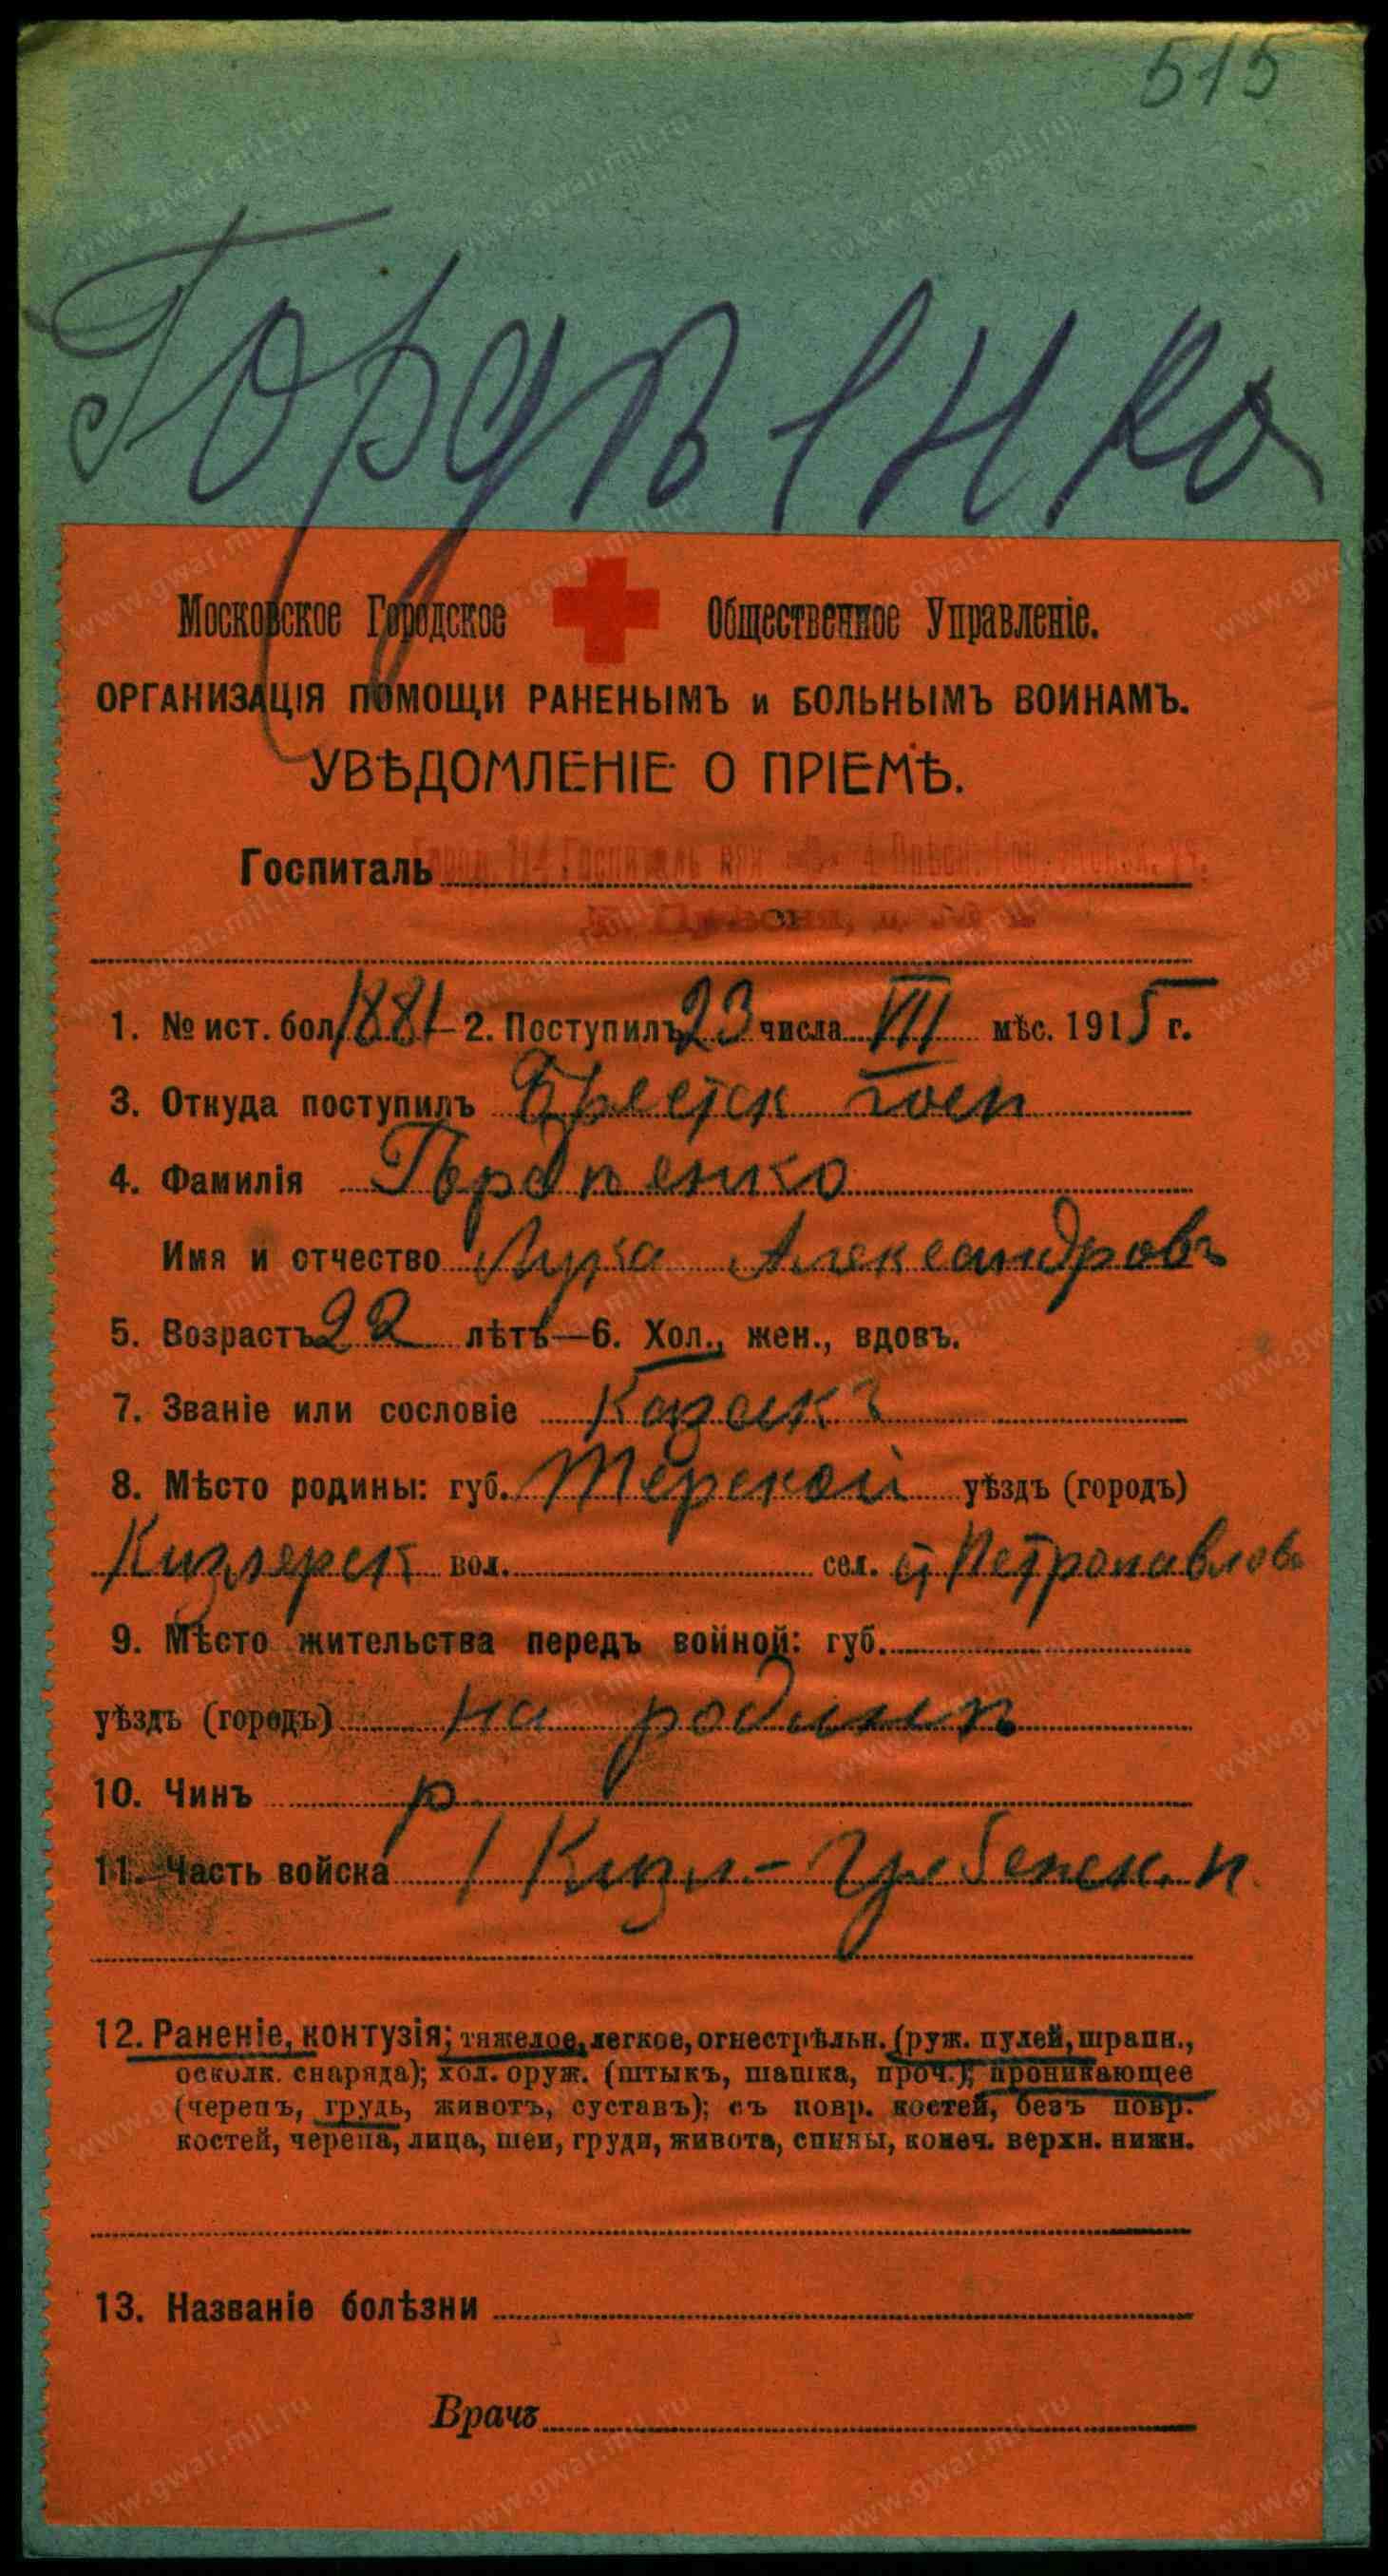 515
Гордѣенко
Московское Городское Общественное Управленіе.
ОРГАНИЗАЦІЯ ПОМОЩИ РАНЕНЫМЪ и БОЛЬНЫМЪ ВОИНАМЪ.
УВѢДОМЛЕНІЕ О ПРІЕМѢ.
Госпиталь
1. № ист. бол. 1881 — 2. Поступилъ 23 числа VII мѣс. 1915 г.
3. Откуда поступилъ Брестск госп
4. Фамилія Гордѣенко
Имя и отчество Лука Александровъ
5. Возрастъ 22 лѣтъ—6. Хол., жен., вдовъ.
7. Званіе или сословіе Казакъ
8. Мѣсто родины: губ. Терской уѣздъ (городъ)
Кизлярск вол. сел. ст Петропавлов
9. Мѣсто жительства передъ войной: губ.
уѣздъ (городъ) на родинѣ
10. Чинъ р
11. Часть войска 1 Кизл-Гребенск. п
12. Раненіе, контузія; тяжелое, легкое, огнестрѣльн. (руж. пулей, шрапн.,
осколк. снаряда); хол. оруж. (штыкъ, шашка, проч.); проникающее
(черепъ, грудь, животъ, суставъ); съ повр. костей, безъ повр.
костей, черепа, лица, шеи, груди, живота, спины, конеч. верхн. нижн.
13. Названіе болѣзни
Врачъ